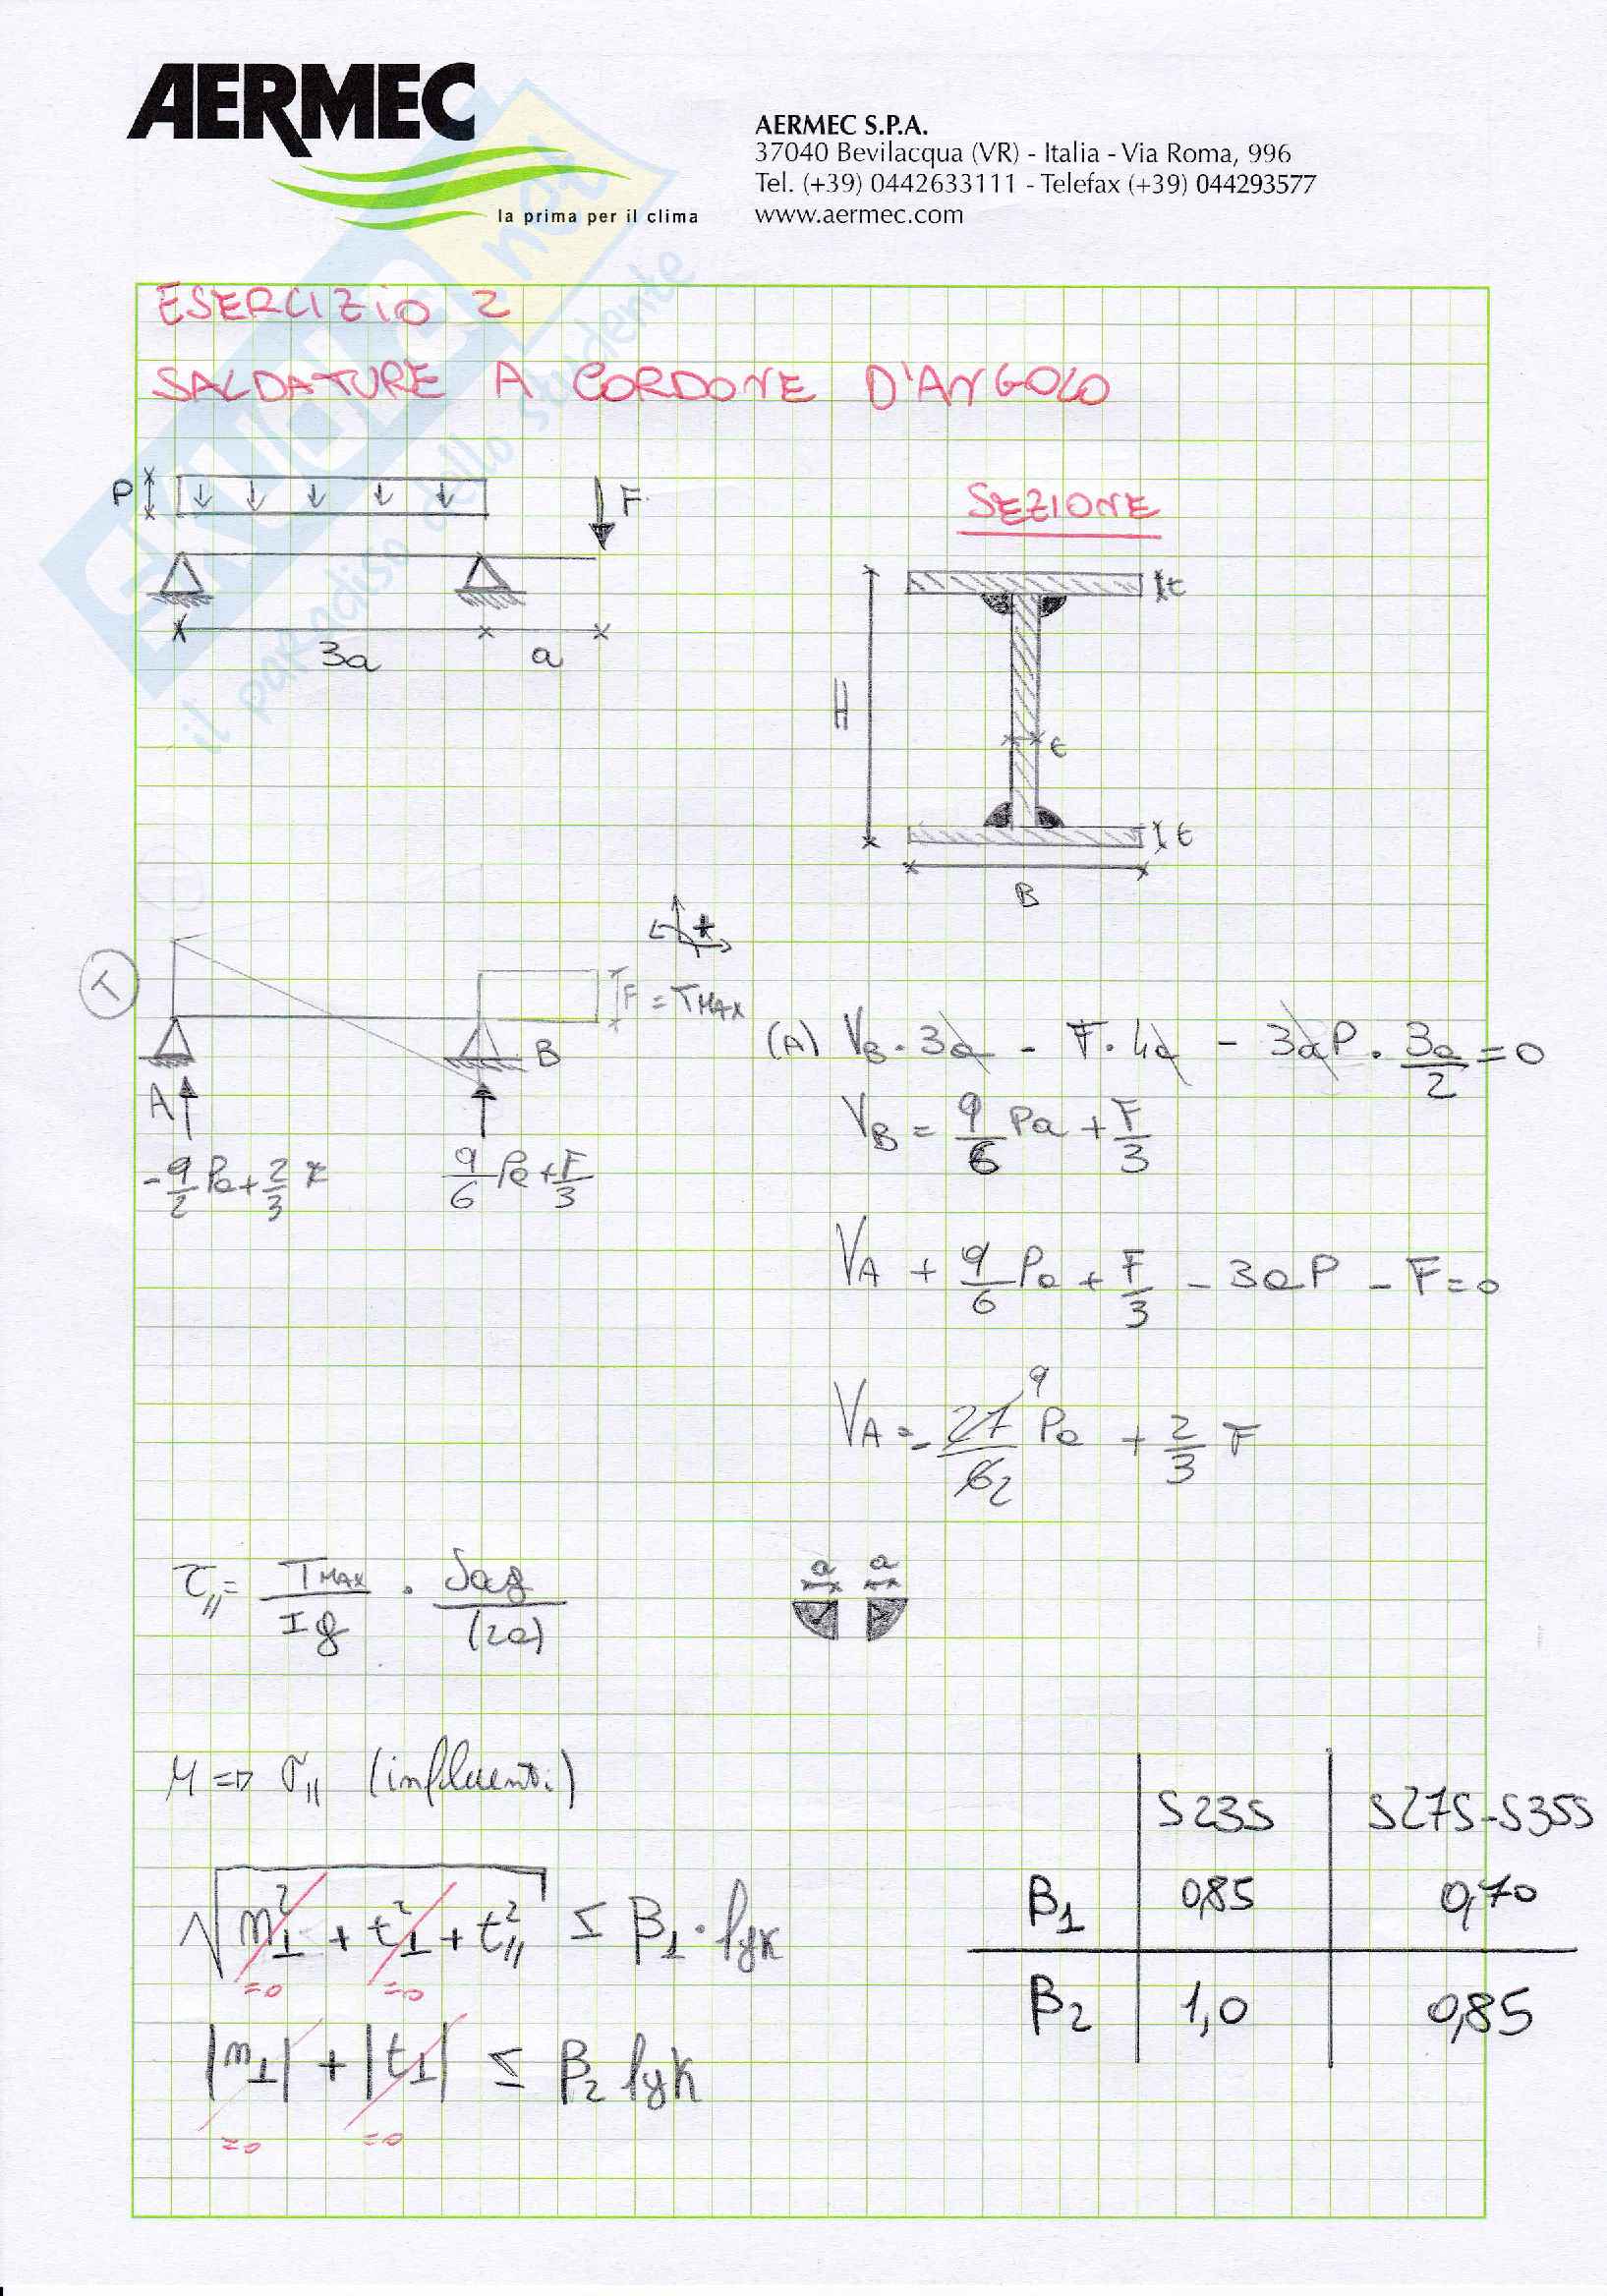 AERMEC
la prima per il clima
AERMEC S.P.A.
37040 Bevilacqua (VR) - Italia - Via Roma, 996
Tel. (+39) 0442633111 - Telefax (+39) 044293577
www.aermec.com
SKUOLA.net
il paradiso dello studente
ESERCIZIO 2
SALDATURE A CORDONE D'ANGOLO
P
F
3a a
SEZIONE
H
t
t
t
B
T
F = TMAX
+
A
B
-9/2 Pa + 2/3 F
9/6 Pa + F/3
(A) VB · 3a - F · 4a - 3aP · 3a/2 = 0
VB = 9/6 Pa + F/3
VA + 9/6 Pa + F/3 - 3aP - F = 0
VA = - 27/6 9/2 Pa + 2/3 F
τ// = TMAX/Ig · Sag/(2a)
a a
M => σ// (influenti)
√(n⊥² + t⊥² + t//²) ≤ β1 · fyk
=0 =0
|n⊥| + |t⊥| ≤ β2 fyk
=0 =0
S235 S275-S355
β1 0,85 0,70
β2 1,0 0,85